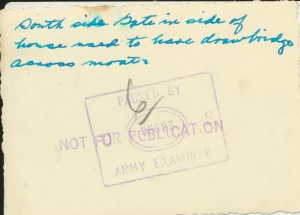 South side. Gate in side of
house used to have drawbridge
across moat.
PASSED BY
NOT FOR PUBLICATION
ARMY EXAMINER